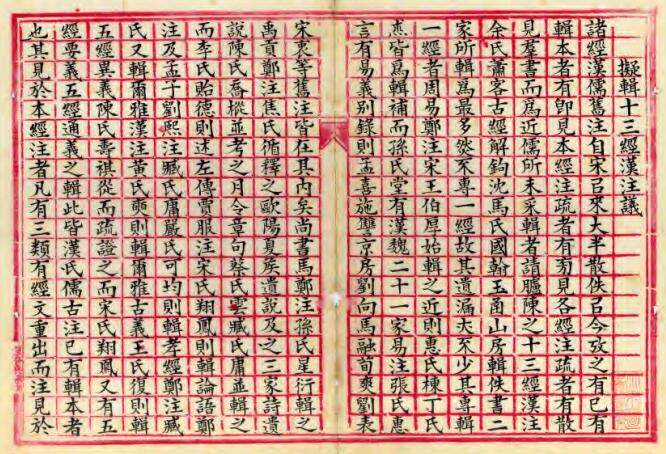 擬輯十三經漢注議
諸經漢儒舊注自宋㠯來大半散佚㠯今攷之有已有
輯本者有卽見本經注疏者有㪚見各經注疏者有散
見羣書而爲近儒所未采輯者請臚陳之十三經漢注
余氏蕭客古經解鉤沈馬氏國翰玉函山房輯佚書二
家所輯爲最多然不專一經故其遺漏亦不少其專輯
一經者周易鄭注宋王伯厚始輯之近則惠氏棟丁氏
杰皆爲輯補而孫氏堂有漢魏二十一家易注張氏惠
言有易義别錄則孟喜施讐京房劉向馬融荀爽劉表
宋衷等舊注皆在其內矣尚書馬鄭注孫氏星衍輯之
禹貢鄭注焦氏循釋之歐陽夏矦遺說及之三家詩遺
說陳氏喬樅並考之月令章句蔡氏雲臧氏庸並輯之
而李氏貽德則述左傳賈服注宋氏翔鳳則輯論語鄭
注及孟子劉熙注臧氏庸嚴氏可均則輯孝經鄭注臧
氏又輯爾雅漢注黃氏奭則輯爾雅古義王氏復則輯
五經異義陳氏壽祺從而疏證之而宋氏翔鳳又有五
經要義五經通義之輯此皆漢氏儒古注已有輯本者
也其見於本經注者凡有三類有經文重出而注見於